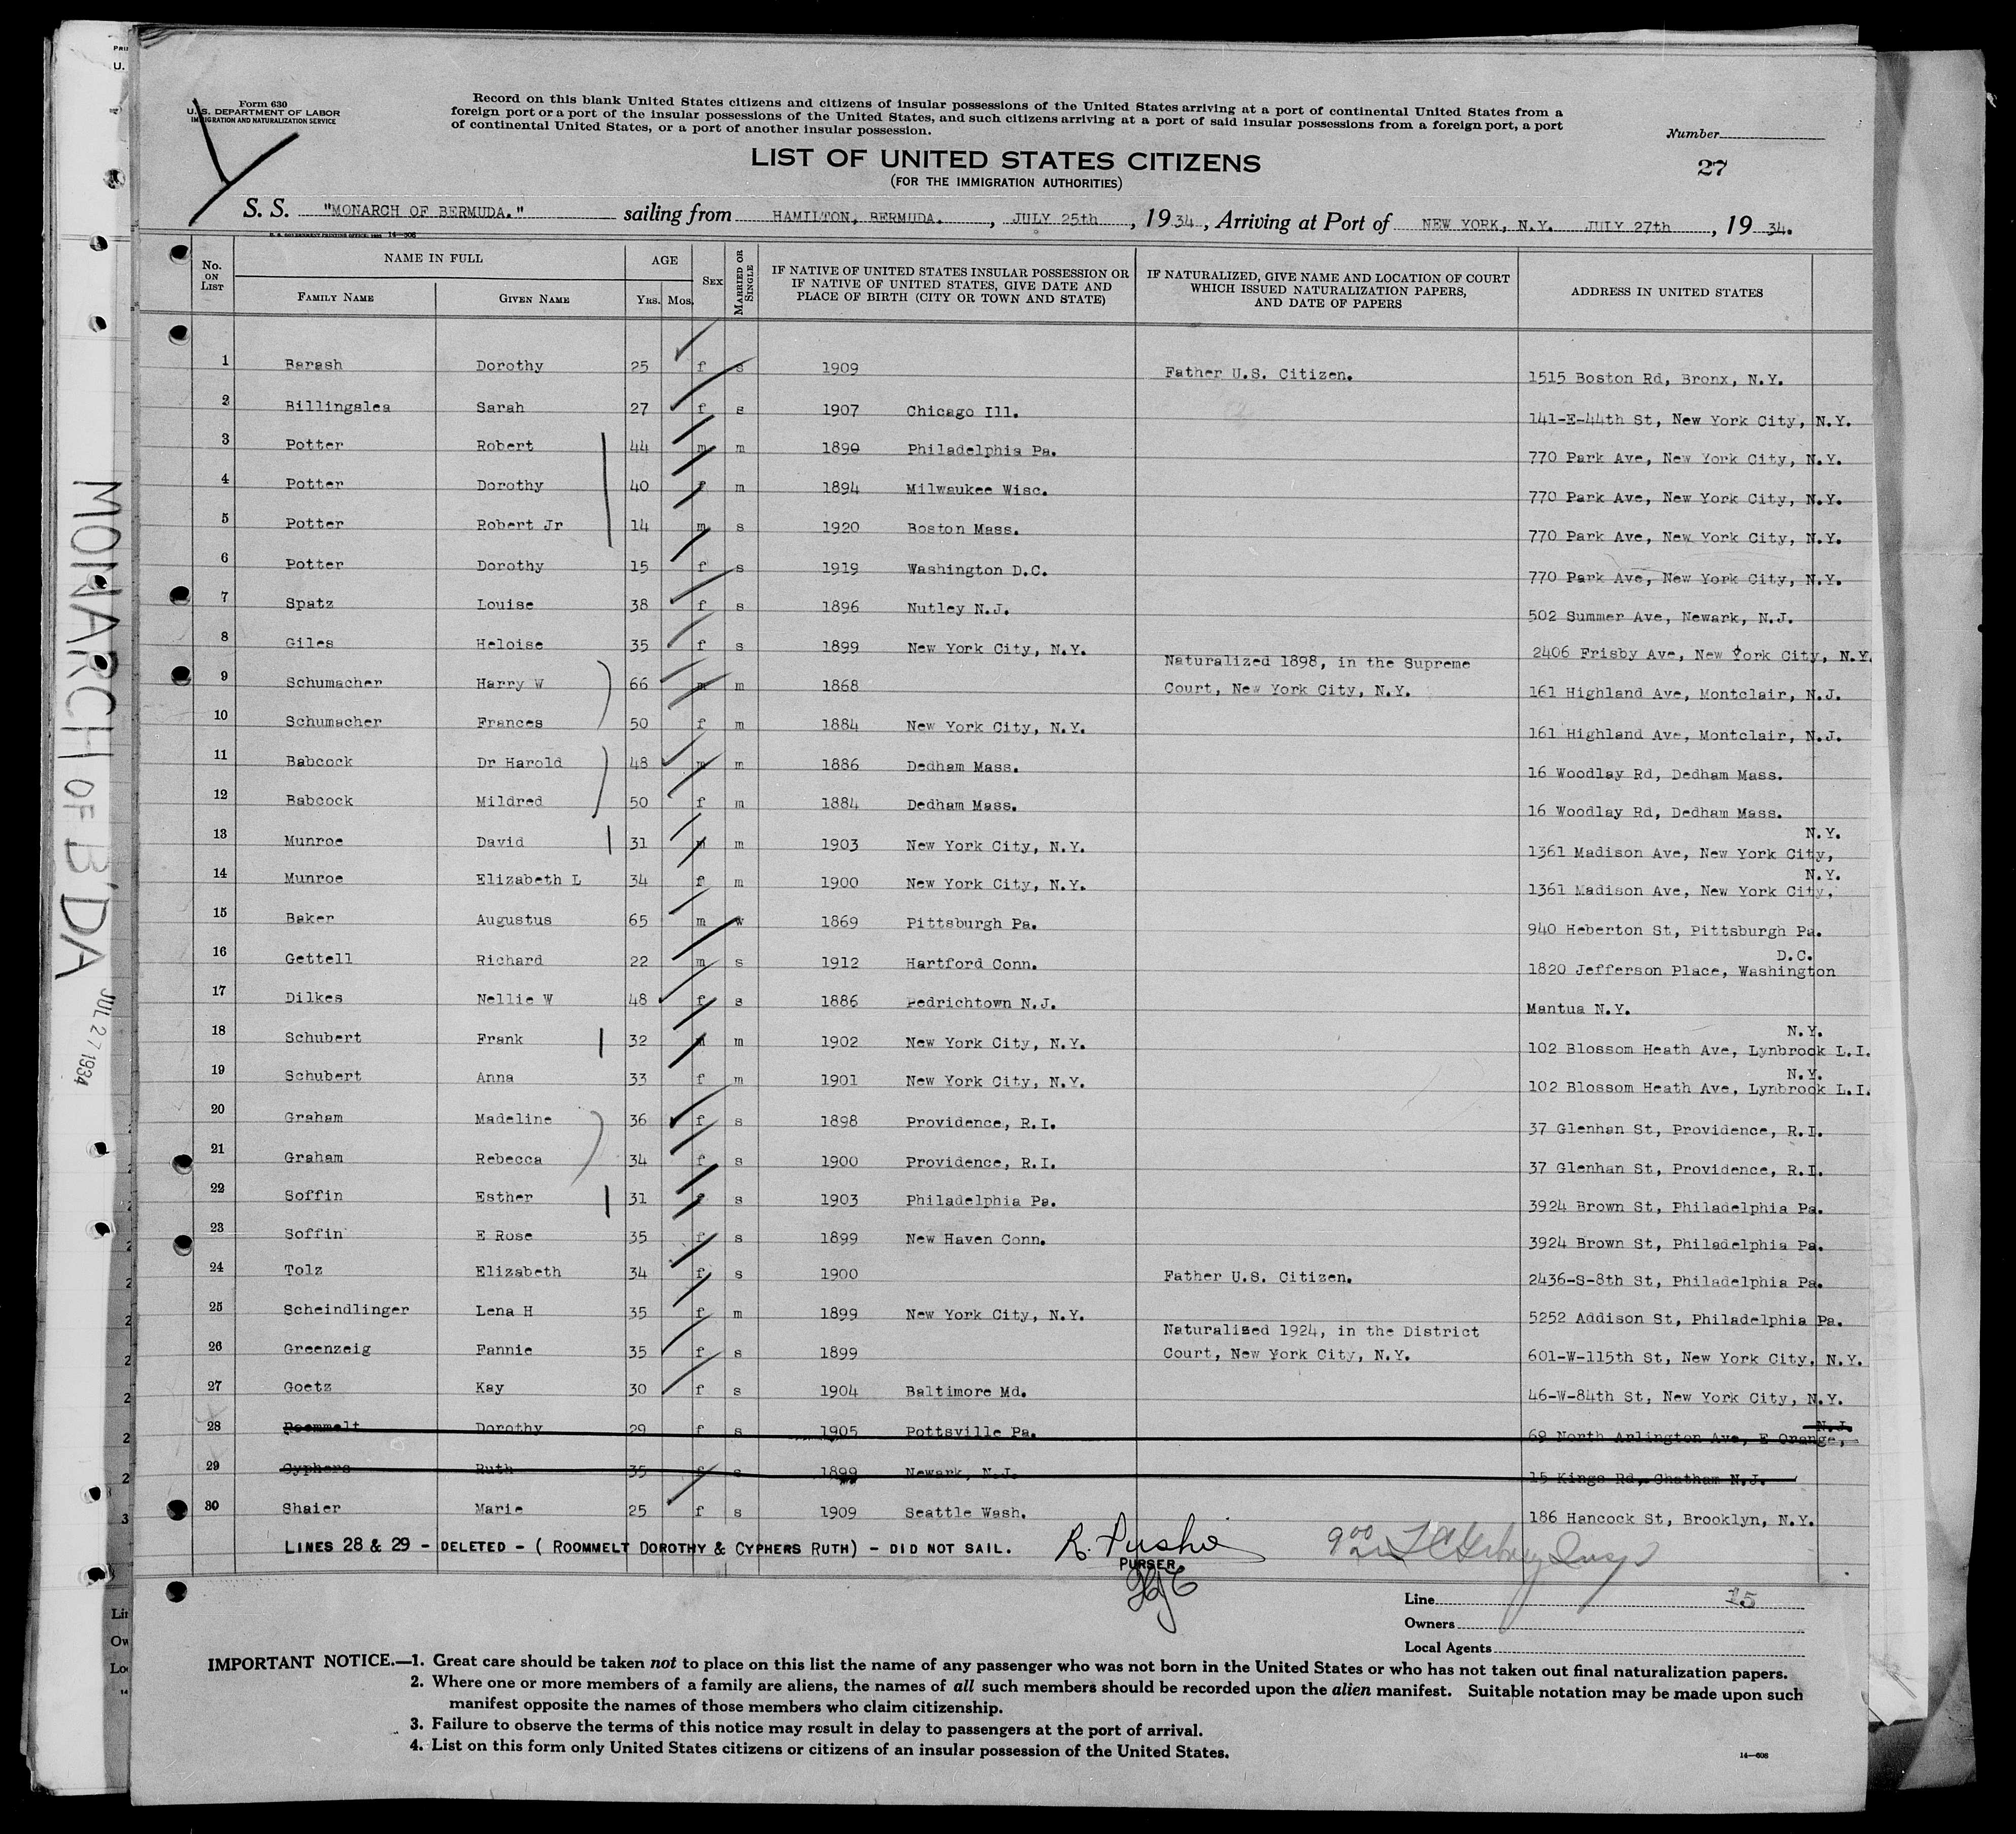 Form 630
U. S. DEPARTMENT OF LABOR
IMMIGRATION AND NATURALIZATION SERVICE
Record on this blank United States citizens and citizens of insular possessions of the United States arriving at a port of continental United States from a
foreign port or a port of the insular possessions of the United States, and such citizens arriving at a port of said insular possessions from a foreign port, a port
of continental United States, or a port of another insular possession.
Number
27
LIST OF UNITED STATES CITIZENS
(FOR THE IMMIGRATION AUTHORITIES)
S. S. "MONARCH OF BERMUDA." sailing from HAMILTON, BERMUDA. , JULY 25th , 1934 , Arriving at Port of NEW YORK, N.Y. JULY 27th , 1934.
U. S. GOVERNMENT PRINTING OFFICE: 14—608
No. ON LIST
NAME IN FULL
FAMILY NAME GIVEN NAME
AGE
YRS. MOS.
SEX
MARRIED OR SINGLE
IF NATIVE OF UNITED STATES INSULAR POSSESSION OR
IF NATIVE OF UNITED STATES, GIVE DATE AND
PLACE OF BIRTH (CITY OR TOWN AND STATE)
IF NATURALIZED, GIVE NAME AND LOCATION OF COURT
WHICH ISSUED NATURALIZATION PAPERS,
AND DATE OF PAPERS
ADDRESS IN UNITED STATES
1 Barash Dorothy 25 f s 1909 Father U.S. Citizen. 1515 Boston Rd, Bronx, N.Y.
2 Billingslea Sarah 27 f s 1907 Chicago Ill. 141-E-44th St, New York City, N.Y.
3 Potter Robert 44 m m 1890 Philadelphia Pa. 770 Park Ave, New York City, N.Y.
4 Potter Dorothy 40 f m 1894 Milwaukee Wisc. 770 Park Ave, New York City, N.Y.
5 Potter Robert Jr 14 m s 1920 Boston Mass. 770 Park Ave, New York City, N.Y.
6 Potter Dorothy 15 f s 1919 Washington D.C. 770 Park Ave, New York City, N.Y.
7 Spatz Louise 38 f s 1896 Nutley N.J. 502 Summer Ave, Newark, N.J.
8 Giles Heloise 35 f s 1899 New York City, N.Y. 2406 Frisby Ave, New York City, N.Y.
9 Schumacher Harry W 66 m m 1868 Naturalized 1898, in the Supreme
Court, New York City, N.Y. 161 Highland Ave, Montclair, N.J.
10 Schumacher Frances 50 f m 1884 New York City, N.Y. 161 Highland Ave, Montclair, N.J.
11 Babcock Dr Harold 48 m m 1886 Dedham Mass. 16 Woodlay Rd, Dedham Mass.
12 Babcock Mildred 50 f m 1884 Dedham Mass. 16 Woodlay Rd, Dedham Mass.
13 Munroe David 31 m m 1903 New York City, N.Y. 1361 Madison Ave, New York City, N.Y.
14 Munroe Elizabeth L 34 f m 1900 New York City, N.Y. 1361 Madison Ave, New York City, N.Y.
15 Baker Augustus 65 m w 1869 Pittsburgh Pa. 940 Heberton St, Pittsburgh Pa.
16 Gettell Richard 22 m s 1912 Hartford Conn. 1820 Jefferson Place, Washington D.C.
17 Dilkes Nellie W 48 f s 1886 Pedrichtown N.J. Mantua N.Y.
18 Schubert Frank 32 m m 1902 New York City, N.Y. 102 Blossom Heath Ave, Lynbrook L.I. N.Y.
19 Schubert Anna 33 f m 1901 New York City, N.Y. 102 Blossom Heath Ave, Lynbrook L.I. N.Y.
20 Graham Madeline 36 f s 1898 Providence, R.I. 37 Glenhan St, Providence, R.I.
21 Graham Rebecca 34 f s 1900 Providence, R.I. 37 Glenhan St, Providence, R.I.
22 Soffin Esther 31 f s 1903 Philadelphia Pa. 3924 Brown St, Philadelphia Pa.
23 Soffin E Rose 35 f s 1899 New Haven Conn. 3924 Brown St, Philadelphia Pa.
24 Tolz Elizabeth 34 f s 1900 Father U.S. Citizen. 2436-S-8th St, Philadelphia Pa.
25 Scheindlinger Lena H 35 f m 1899 New York City, N.Y. 5252 Addison St, Philadelphia Pa.
26 Greenzeig Fannie 35 f s 1899 Naturalised 1924, in the District
Court, New York City, N.Y. 601-W-115th St, New York City, N.Y.
27 Goetz Kay 30 f s 1904 Baltimore Md. 46-W-84th St, New York City, N.Y.
28 Roommelt Dorothy 29 f s 1905 Pottsville Pa. 69 North Arlington Ave, E Orange, N.J.
29 Cyphers Ruth 35 f s 1899 Newark, N.J. 15 Kings Rd, Chatham N.J.
30 Shaier Marie 25 f s 1909 Seattle Wash. 186 Hancock St, Brooklyn, N.Y.
LINES 28 & 29 - DELETED - ( ROOMMELT DOROTHY & CYPHERS RUTH) - DID NOT SAIL.
PURSER.
Line 15
Owners
Local Agents
IMPORTANT NOTICE.—1. Great care should be taken not to place on this list the name of any passenger who was not born in the United States or who has not taken out final naturalization papers.
2. Where one or more members of a family are aliens, the names of all such members should be recorded upon the alien manifest. Suitable notation may be made upon such
manifest opposite the names of those members who claim citizenship.
3. Failure to observe the terms of this notice may result in delay to passengers at the port of arrival.
4. List on this form only United States citizens or citizens of an insular possession of the United States.
14—608
MONARCH OF B'DA
JUL 27 1934